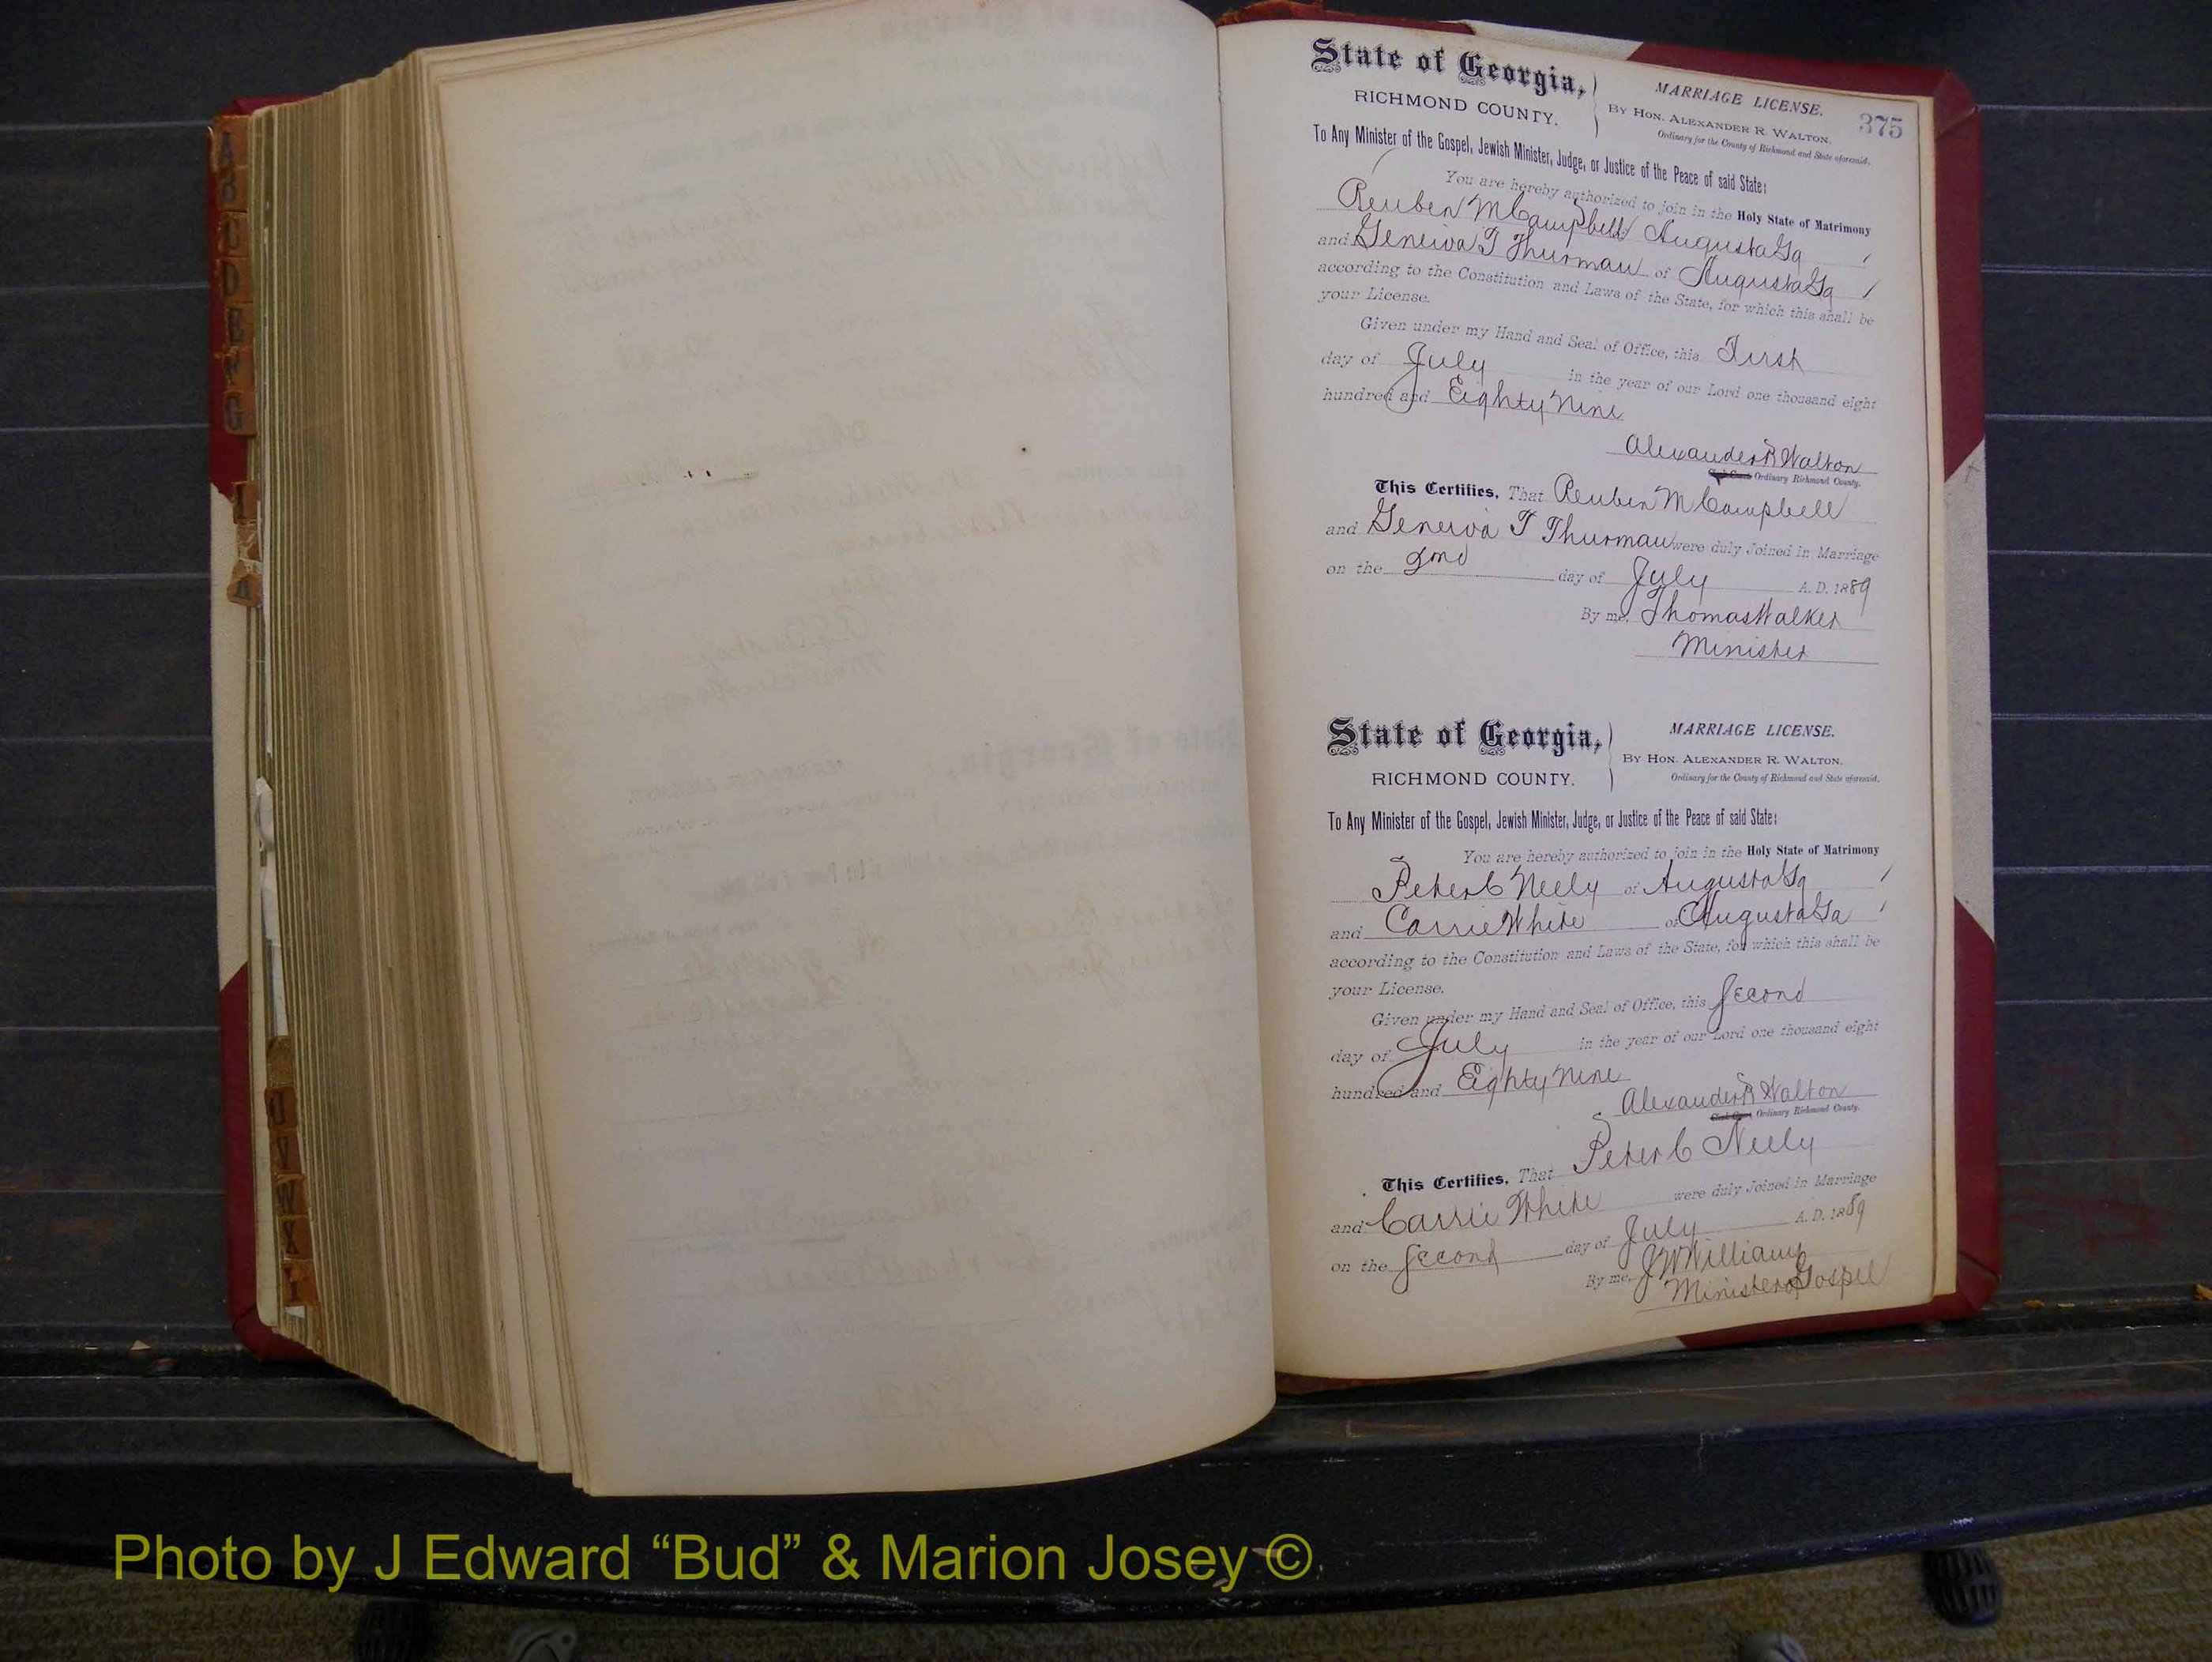 State of Georgia,
RICHMOND COUNTY.
MARRIAGE LICENSE.
BY HON. ALEXANDER R. WALTON,
Ordinary for the County of Richmond and State aforesaid.
375
To Any Minister of the Gospel, Jewish Minister, Judge, or Justice of the Peace of said State:
You are hereby authorized to join in the Holy State of Matrimony
Reuben M Campbell Augusta Ga
and Geneiva T Thurman of Augusta Ga
according to the Constitution and Laws of the State, for which this shall be
your License.
Given under my Hand and Seal of Office, this First
day of July in the year of our Lord one thousand eight
hundred and Eighty Nine
Alexander R Walton
Ordinary Richmond County.
This Certifies, That Reuben M Campbell
and Geneiva T Thurman were duly Joined in Marriage
on the 2nd day of July A. D. 1889
By me, Thomas Walker
Minister
State of Georgia,
RICHMOND COUNTY.
MARRIAGE LICENSE.
BY HON. ALEXANDER R. WALTON,
Ordinary for the County of Richmond and State aforesaid.
To Any Minister of the Gospel, Jewish Minister, Judge, or Justice of the Peace of said State:
You are hereby authorized to join in the Holy State of Matrimony
Peter C Neely of Augusta Ga
and Carrie White of Augusta Ga
according to the Constitution and Laws of the State, for which this shall be
your License.
Given under my Hand and Seal of Office, this Second
day of July in the year of our Lord one thousand eight
hundred and Eighty Nine
Alexander R Walton
Ordinary Richmond County.
This Certifies, That Peter C Neely
and Carrie White were duly Joined in Marriage
on the Second day of July A. D. 1889
By me, J W Williams
Minister of Gospel
A
B
C
D
E
G
U
V
W
X
Y
Photo by J Edward “Bud” & Marion Josey ©